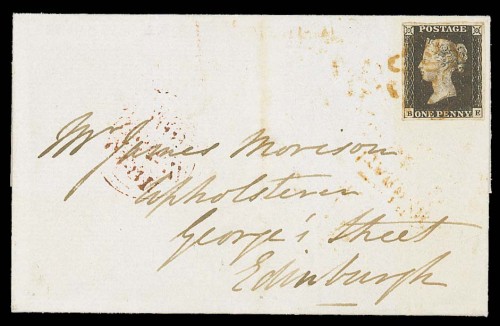 POSTAGE
B E
ONE PENNY
Mr James Morison
Upholsterer
George's Street
Edinburgh